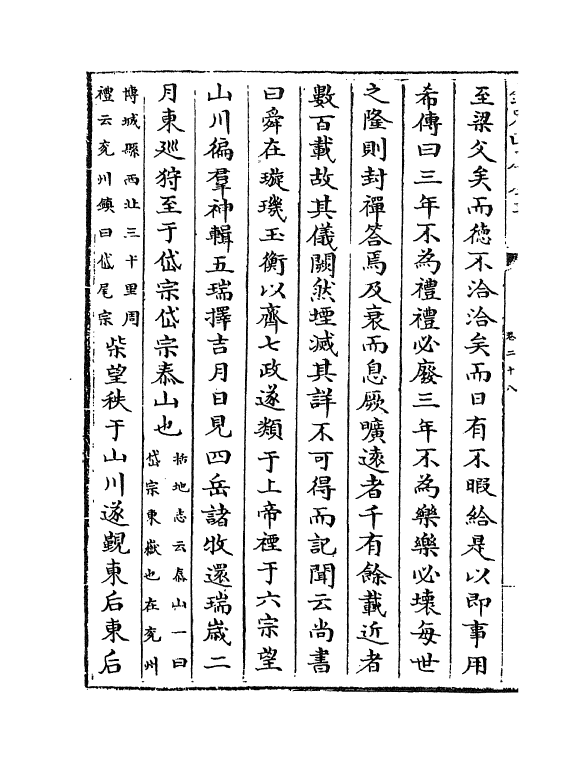 至梁父矣而徳不洽洽矣而日有不暇給是以即事用
希傳曰三年不為禮禮必廢三年不為樂樂必壞每世
之隆則封禪答焉及衰而息厥曠逺者千有餘載近者
數百載故其儀闕然堙滅其詳不可得而記聞云尚書
曰舜在璇璣玉衡以齊七政遂類于上帝禋于六宗望
山川徧羣神輯五瑞擇吉月日見四岳諸牧還瑞嵗二
月東廵狩至于岱宗岱宗泰山也括地志云泰山一曰岱宗東嶽也在兖州
博城縣西北三十里周禮云兖州鎮曰岱宗柴望秩于山川遂覲東后東后
卷二十八